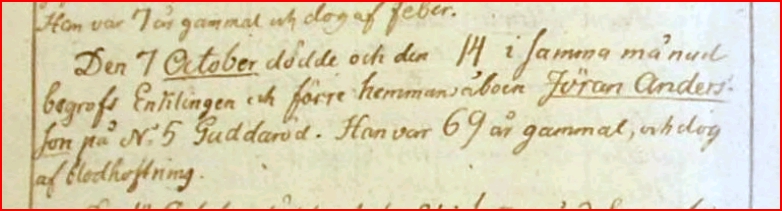 Han var 7 år gammal och dog af feber.
Den 7 October dödde och den 14 i samma månad
begrofs Enklingen och förre hemmansåboen Jöran Anders-
son på N. 5 Guddaröd. Han var 69 år gammal, och dog
af blodhostning.